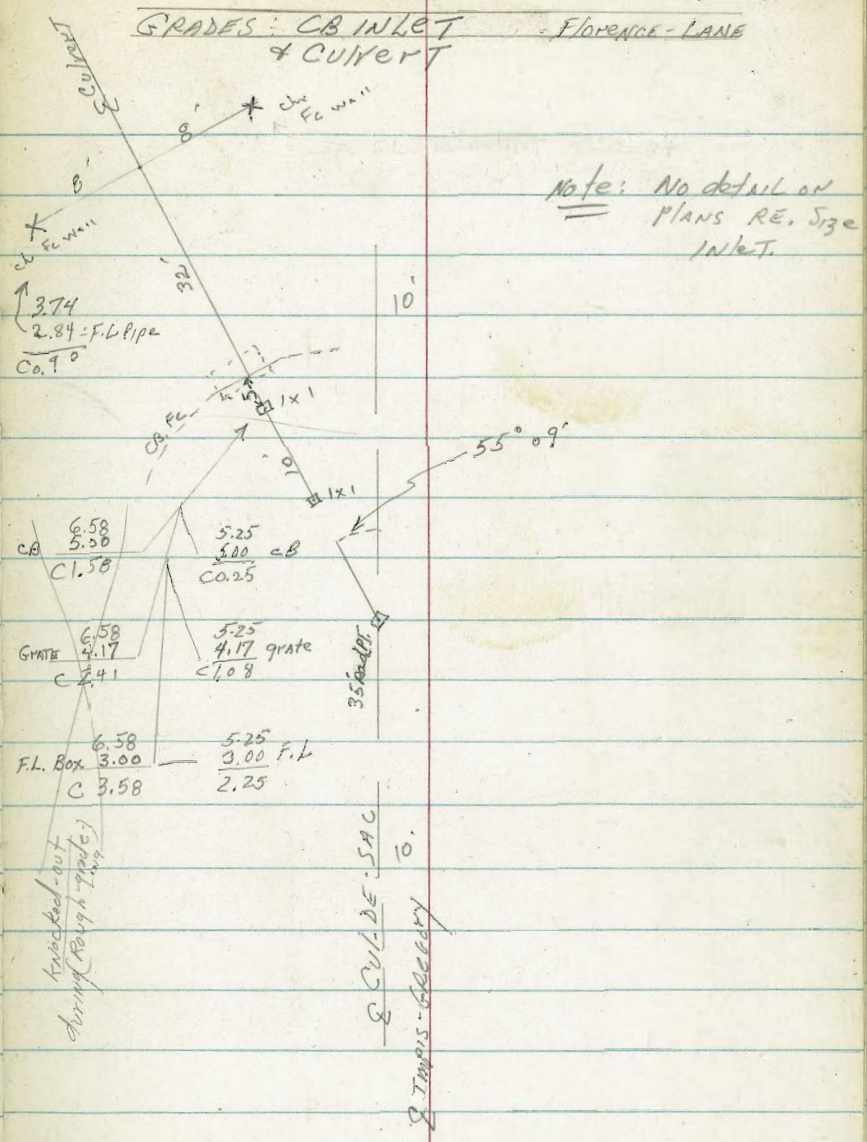 GRADES: CB INLET
& CULVERT
FLORENCE-LANE
℄ Culvert
8'
8'
Fc Wall
Fc Wall
Note: No detail on
PLANS RE. Size
INLET.
32'
10'
3.74
2.84 = F.L Pipe
C0.90
1x1
CB. FC
10'
1x1
55° 09'
CB
6.58
5.00
C1.58
5.25
5.00 CB
C0.25
GRATE
6.58
4.17
C 2.41
5.25
4.17 grate
C1.08
35' Rad Pt.
F.L. Box
6.58
3.00
C 3.58
5.25
3.00 F.L
2.25
KNOCKED-OUT
during Rough-grade-
ing
℄ CUL-DE-SAC
10.
℄ -GREGORY